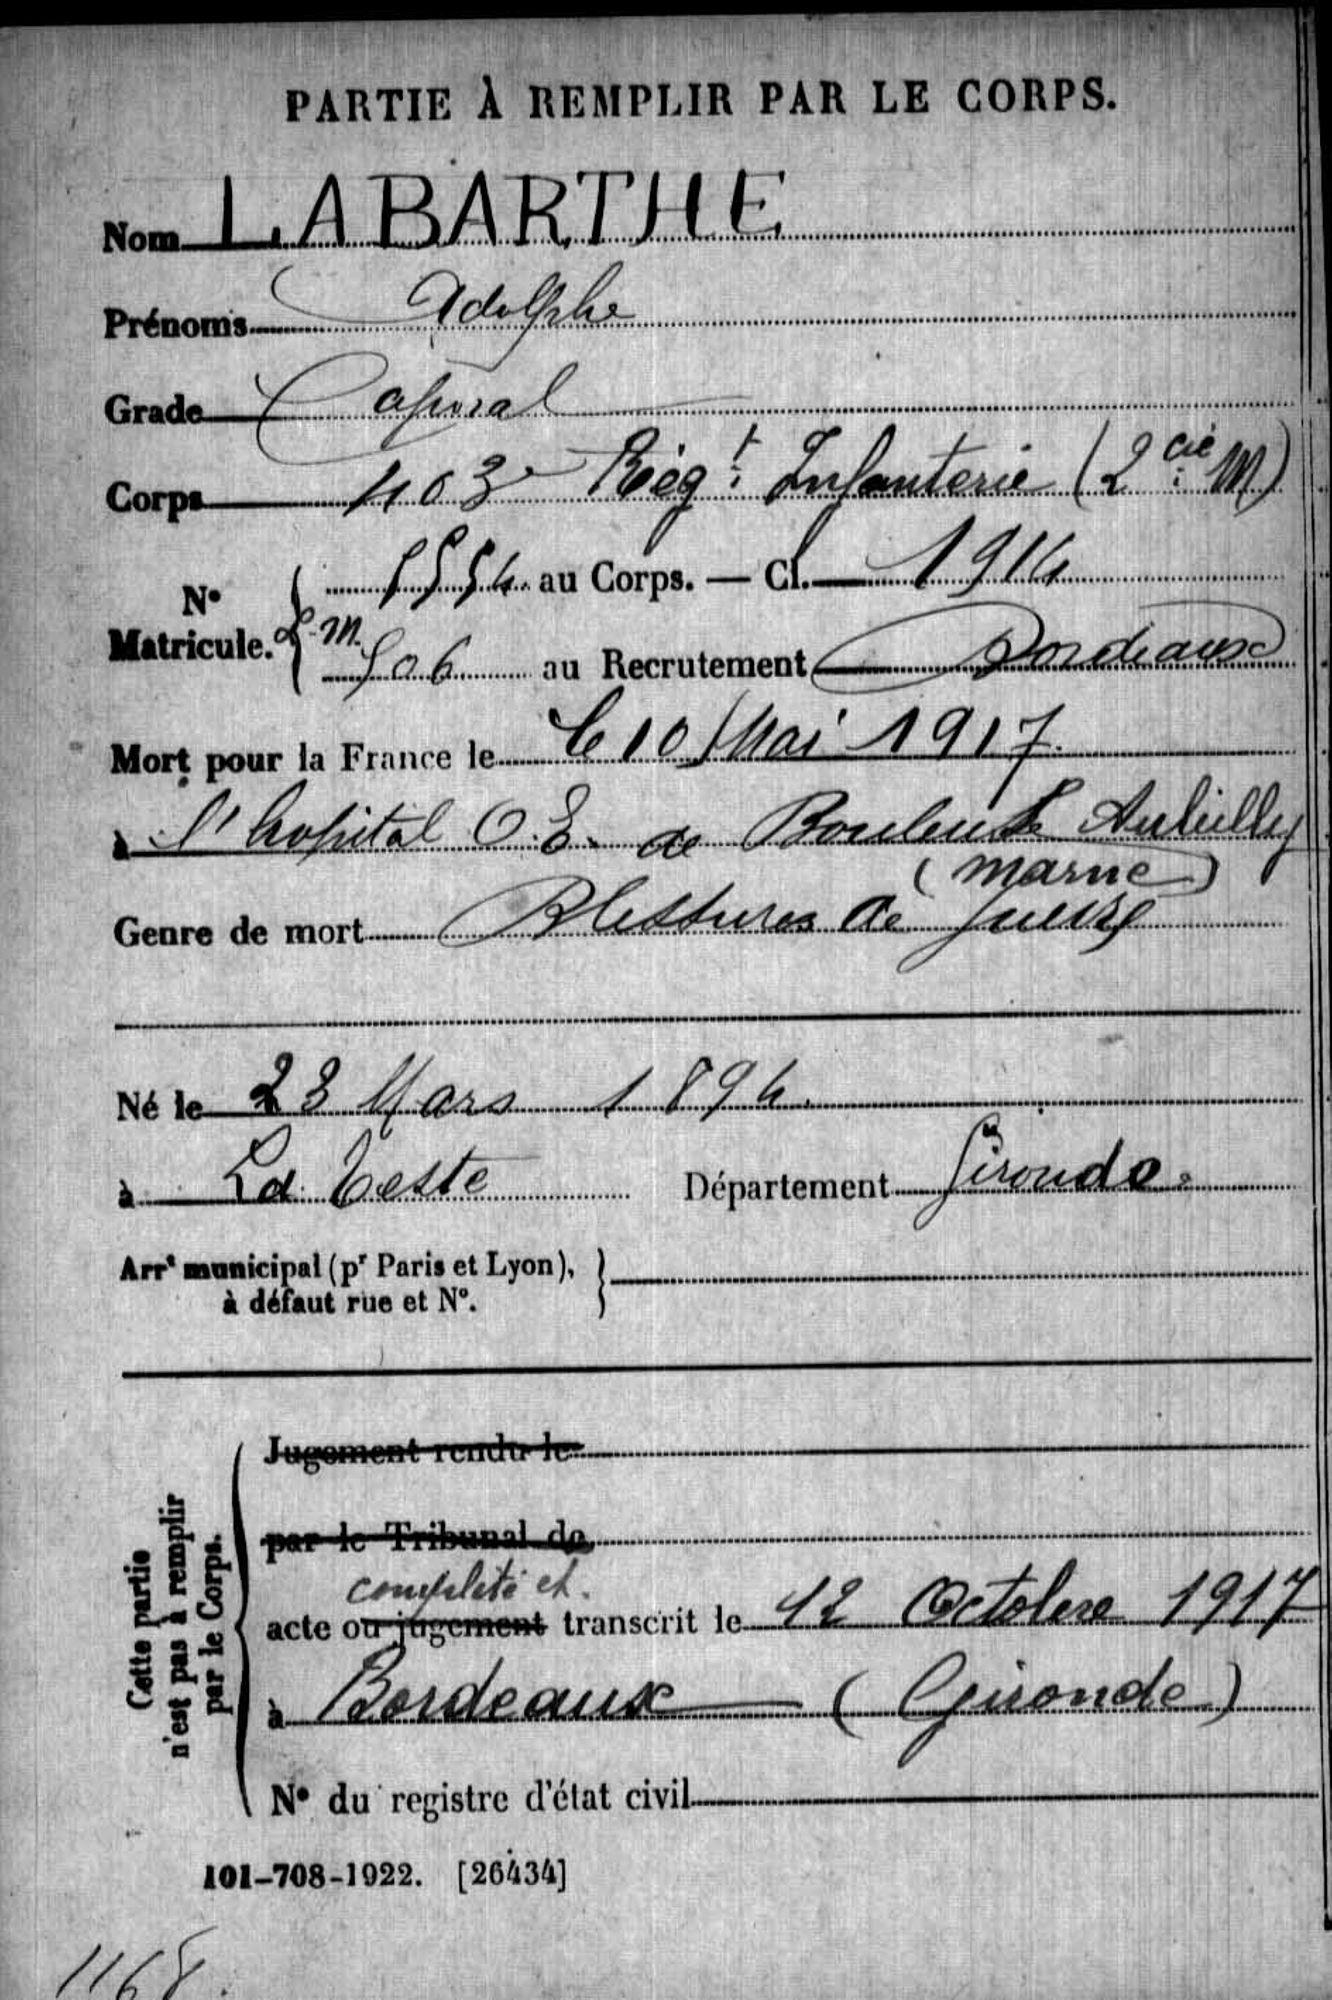 PARTIE À REMPLIR PAR LE CORPS.
Nom LABARTHE
Prénoms Adolphe
Grade Caporal
Corps 403e Régt Infanterie (2 cie M)
No Matricule. 5554 au Corps. — Cl. 1914
L.M. 506 au Recrutement Bordeaux
Mort pour la France le le 10 Mai 1917
à l'hopital O.E. de Bouleuse Aubilly
(Marne)
Genre de mort Blessures de guerre
Né le 23 Mars 1894.
à La Teste Département Gironde.
Arrt municipal (pr Paris et Lyon),
à défaut rue et No.
Cette partie
n'est pas à remplir
par le Corps.
Jugement rendu le
par le Tribunal de
complété et.
acte ou jugement transcrit le 12 Octobre 1917
à Bordeaux (Gironde)
No du registre d'état civil
101-708-1922. [26434]
1168.